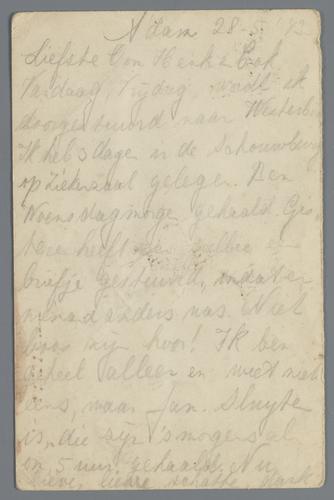 A'dam 28-5-'43
Liefste Con Henk & Cok
Vandaag, Vrijdag, wordt ik
doorgestuurd naar Westerbo
Ik heb 3 dagen in de Schouwburg
op ziekenzaal gelegen. Ben
Woensdagmorgen gehaald. Gis
teren heeft een
briefje gestuurd, omdat er
niemand anders was. Niet
boos zijn hoor! Ik ben
geheel alleen en weet niet
eens, waar Jan. Sluyte
is, die zijn 's morgens al
om 5 uur gehaald. Nu
lieve, lieve schatte, dank